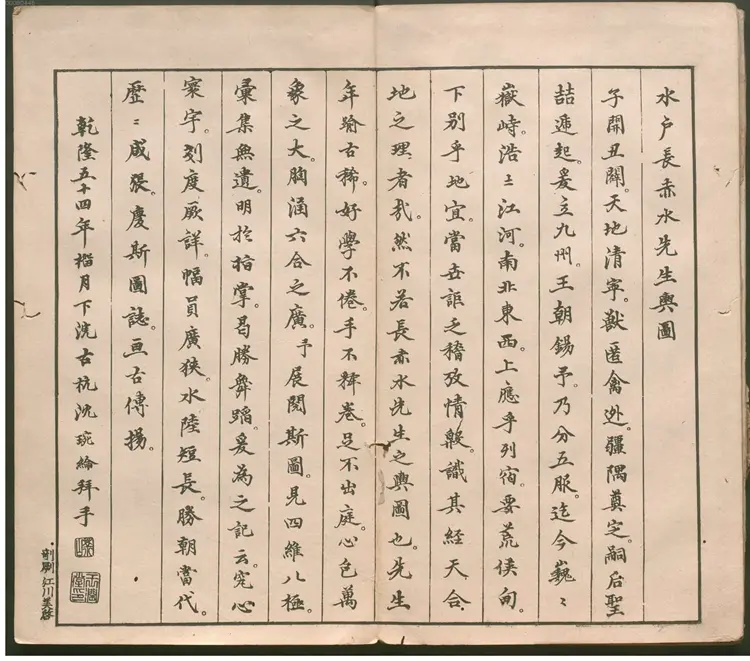 水戸長赤水先生輿圖
子開丑闢。天地清寧。獸匿禽迯。疆隅奠定。嗣后聖
喆遞起。爰立九州。王朝錫予。乃分五服。迄今巍〻
嶽峙。浩〻江河。南北東西。上應乎列宿。要荒侯甸。
下別乎地宜。當世詎乏稽攷情毅。識其經天合
地之理者哉。然不若長赤水先生之輿圖也。先生
年踰古稀。好學不倦。手不釋卷。足不出庭。心包萬
象之大。胸涵六合之廣。予展閱斯圖。見四維八極。
彙集無遺。明於指掌。曷勝舞蹈。爰為之記云。究心
寰宇。刻度厥詳。幅員廣狹。水陸短長。勝朝當代。
歷〻咸張。慶斯圖誌。亙古傳揚。
乾隆五十四年榴月下浣古杭沈琬綸拜手
剞劂 江川美啓